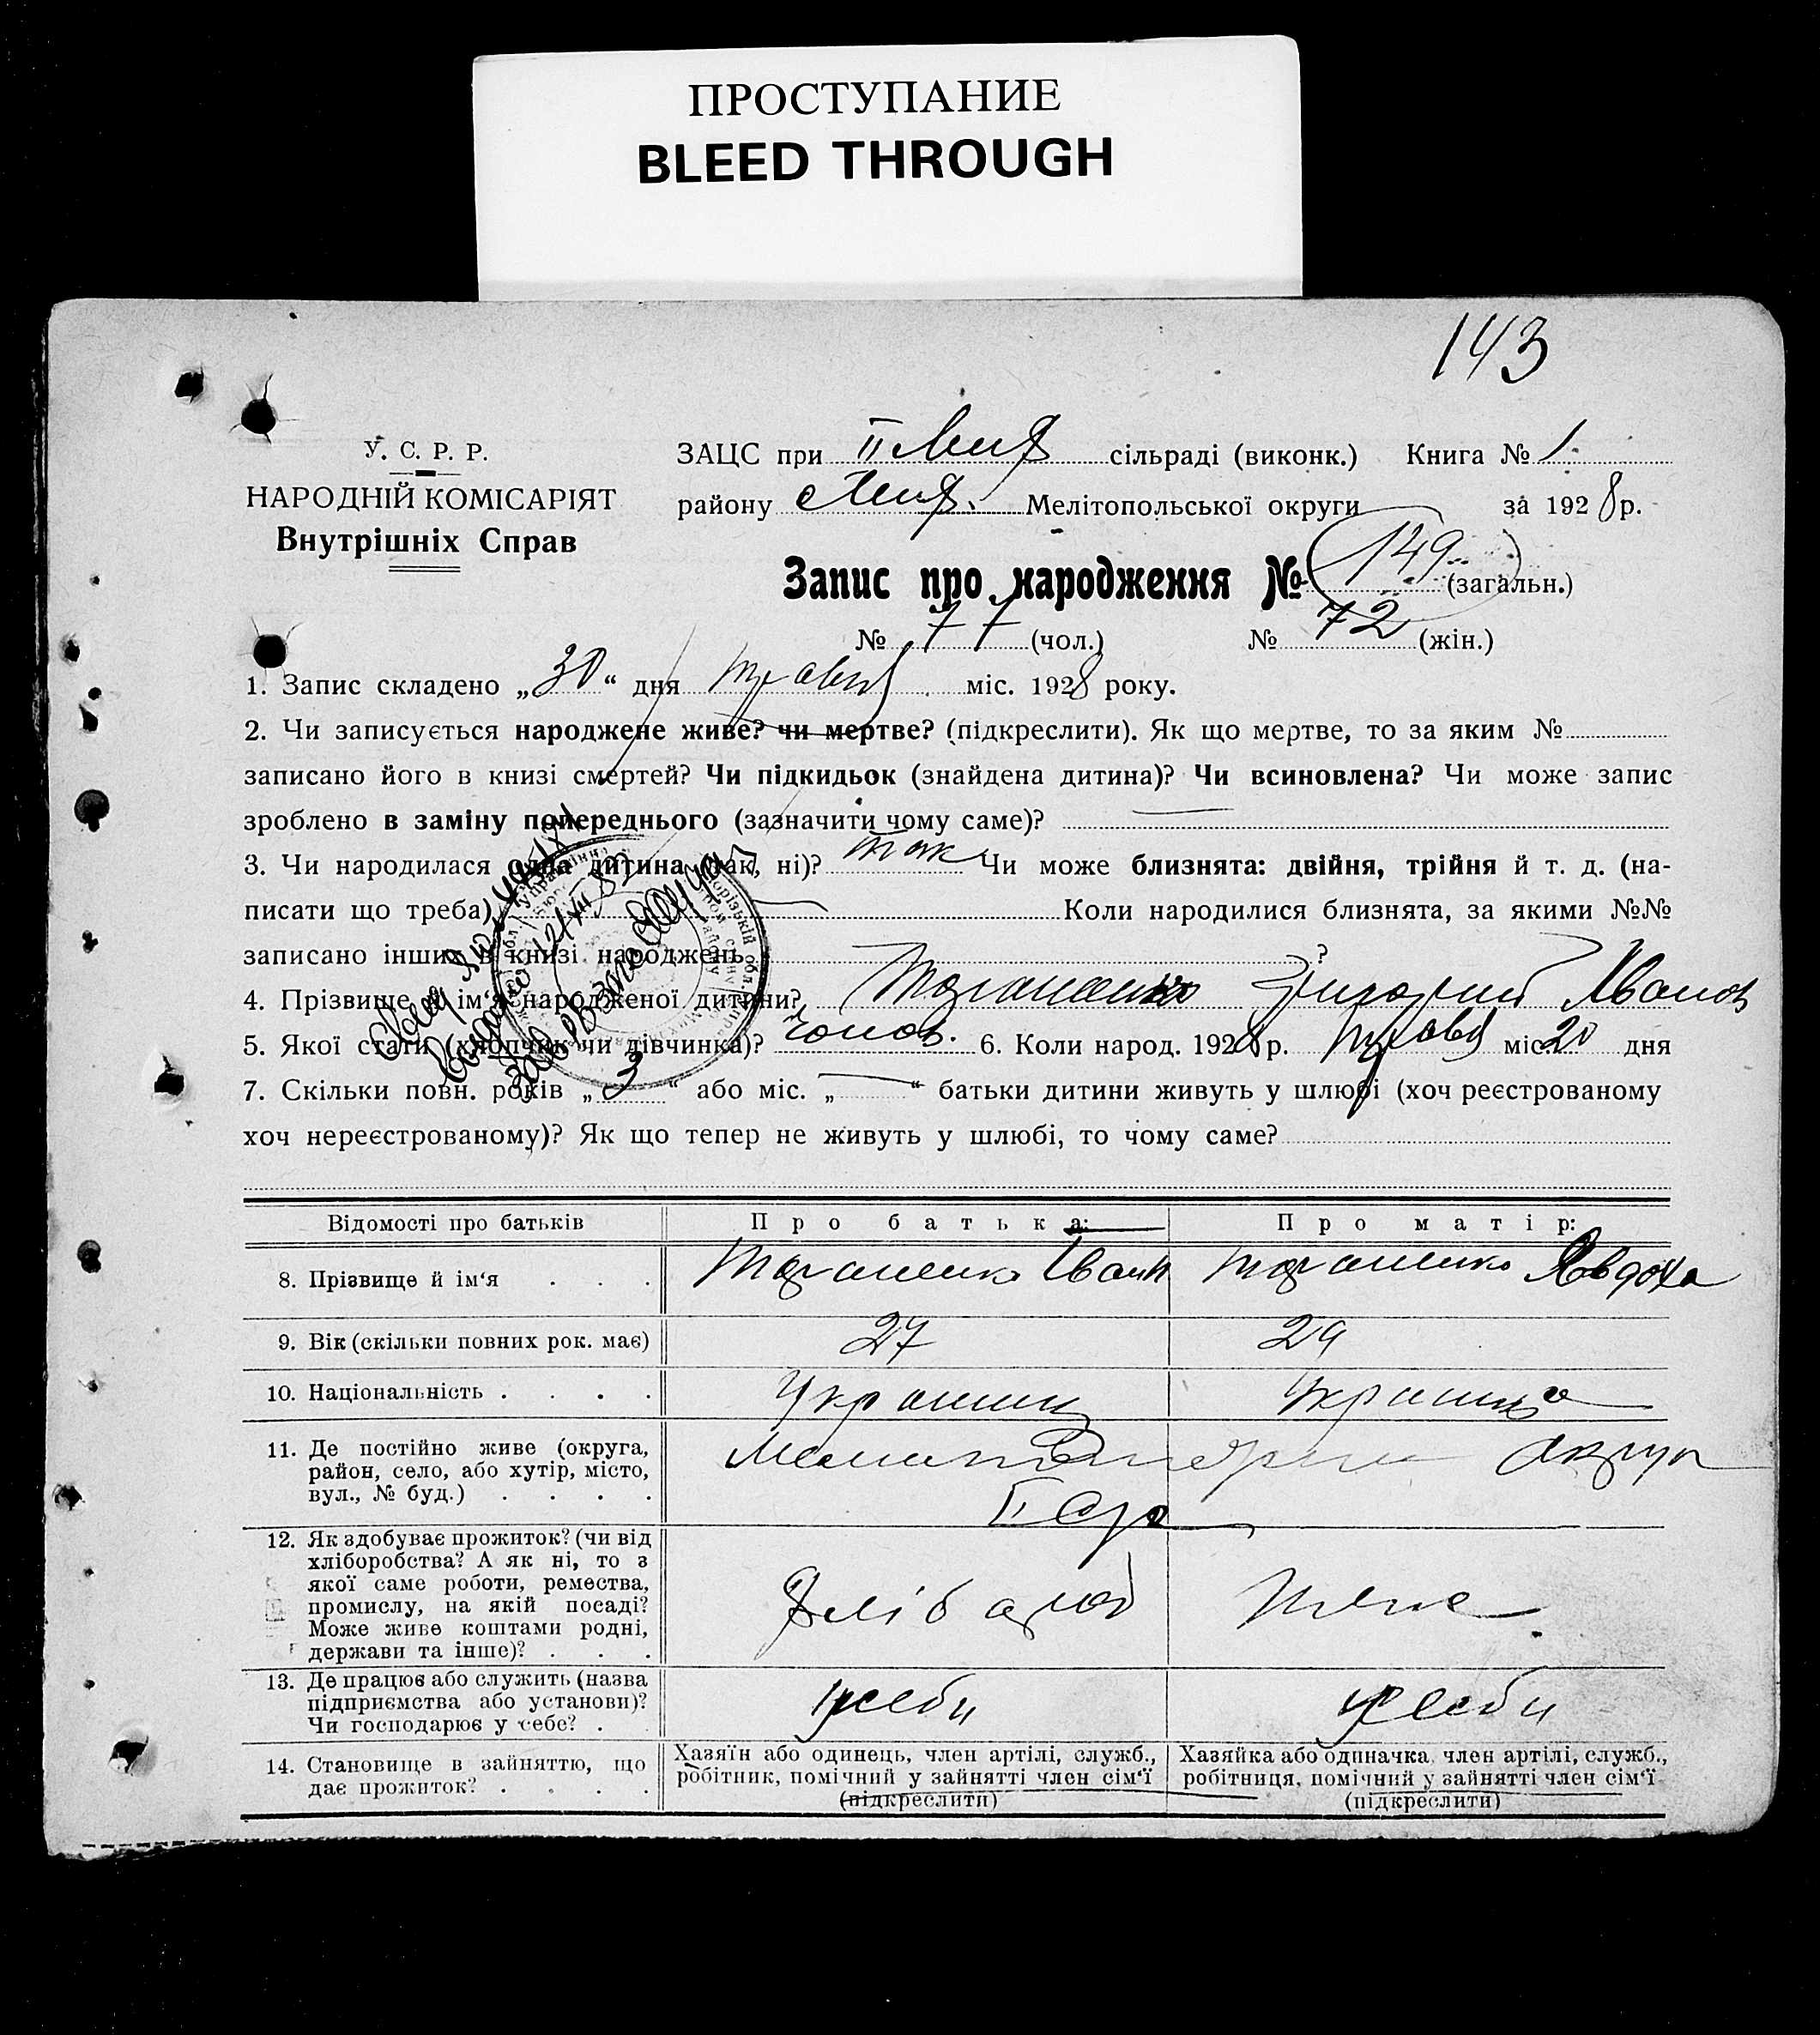 ПРОСТУПАНИЕ
BLEED THROUGH
143
У. С. Р. Р.
НАРОДНІЙ КОМІСАРІЯТ
Внутрішніх Справ
ЗАЦС при II сільраді (виконк.) Книга № 1.
району Мелітопольської округи за 1928 р.
Запис про народження № 149 (загальн.)
№ 77 (чол.) № 72 (жін.)
1. Запис складено „30“ дня травня міс. 1928 року.
2. Чи записується народжене живе? чи мертве? (підкреслити). Як що мертве, то за яким №
записано його в книзі смертей? Чи підкидьок (знайдена дитина)? Чи всиновлена? Чи може запис
зроблено в заміну попереднього (зазначити чому саме)?
3. Чи народилася одна дитина (так, ні)? так Чи може близнята: двійня, трійня й т. д. (на-
писати що треба) Коли народилися близнята, за якими №№
записано інших в книзі народжень ?
4. Прізвище й ім‘я народженої дитини? Григорий Иванов
5. Якої статі (хлопчик чи дівчинка)? чолов. 6. Коли народ. 1928 р. травня міс. 20 дня
7. Скільки повн. років „3“ або міс. „ “ батьки дитини живуть у шлюбі (хоч реєстрованому
хоч нереєстрованому)? Як що тепер не живуть у шлюбі, то чому саме?
Відомості про батьків Про батька: Про матір:
8. Прізвище й ім‘я . . . Іван Явдоха
9. Вік (скільки повних рок. має) 27 29
10. Національність . . . . Украинец Украинка
11. Де постійно живе (округа,
район, село, або хутір, місто,
вул., № буд.) . . . .
округа
12. Як здобуває прожиток? (чи від
хліборобства? А як ні, то з
якої саме роботи, ремества,
промислу, на якій посаді?
Може живе коштами родні,
держави та інше)? . . .
Хлібороб теж
13. Де працює або служить (назва
підприємства або установи)?
Чи господарює у себе? . .
у себи у себи
14. Становище в зайняттю, що
дає прожиток? . . . .
Хазяїн або одинець, член артілі, служб.,
робітник, помічний у зайнятті член сім‘ї
(підкреслити)
Хазяйка або одиначка, член артілі, служб.,
робітниця, помічний у зайнятті член сім‘ї
(підкреслити)